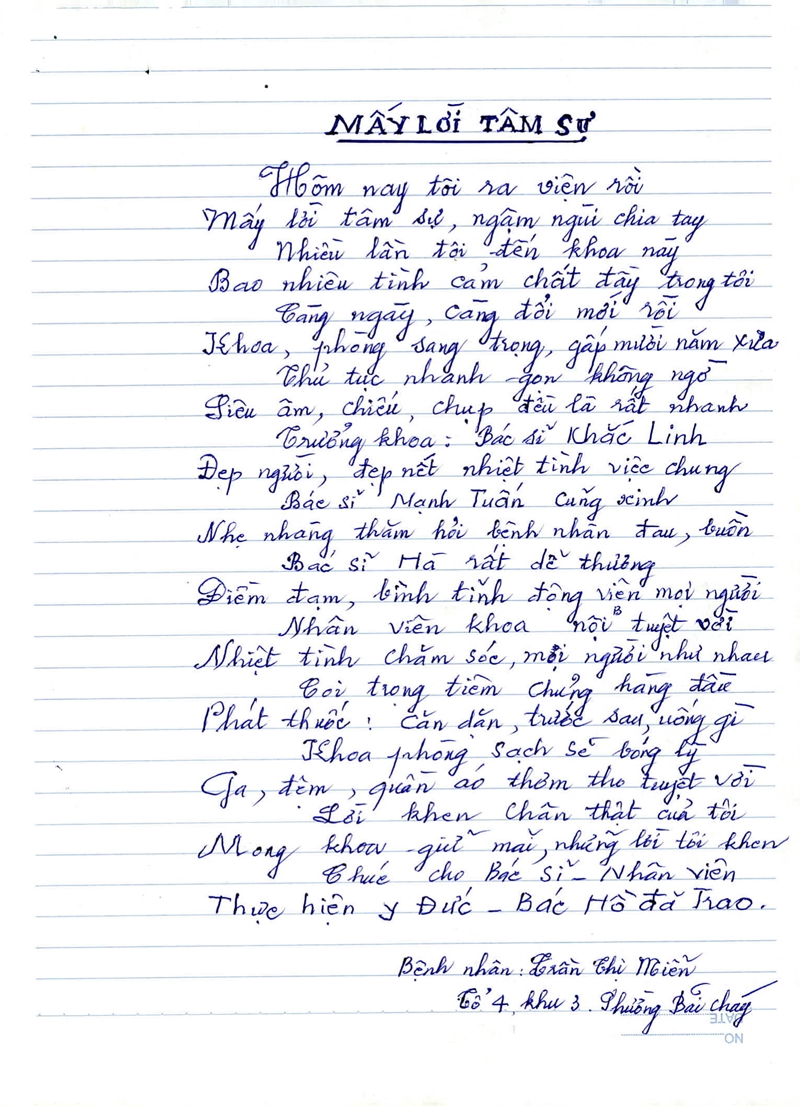 MẤY LỜI TÂM SỰ
Hôm nay tôi ra viện rồi
Mấy lời tâm sự, ngậm ngùi chia tay
Nhiều lần tôi đến khoa này
Bao nhiêu tình cảm chất đầy trong tôi
Càng ngày, càng đổi mới rồi
Khoa, phòng sang trọng, gấp mười năm xưa
Thủ tục nhanh gọn không ngờ
Siêu âm, chiếu, chụp đều là rất nhanh
Trưởng khoa: Bác sĩ Khắc Linh
Đẹp người, đẹp nết nhiệt tình việc chung
Bác sĩ Mạnh Tuấn cũng xinh
Nhẹ nhàng thăm hỏi bệnh nhân đau, buồn
Bác sĩ Hà rất dễ thương
Điềm đạm, bình tĩnh động viên mọi người
Nhân viên khoa nội B tuyệt vời
Nhiệt tình chăm sóc, mọi người như nhau
Coi trọng tiêm chủng hàng đầu
Phát thuốc! Căn dặn, trước sau, uống gì
Khoa phòng sạch sẽ bóng lỳ
Ga, đệm, quần áo thơm tho tuyệt vời
Lời khen chân thật của tôi
Mong khoa giữ mãi, những lời tôi khen
Chúc cho Bác sĩ - Nhân viên
Thực hiện y Đức - Bác Hồ đã Trao.
Bệnh nhân: Trần Thị Miễn
Tổ 4, khu 3. Phường Bãi Cháy
DATE
NO